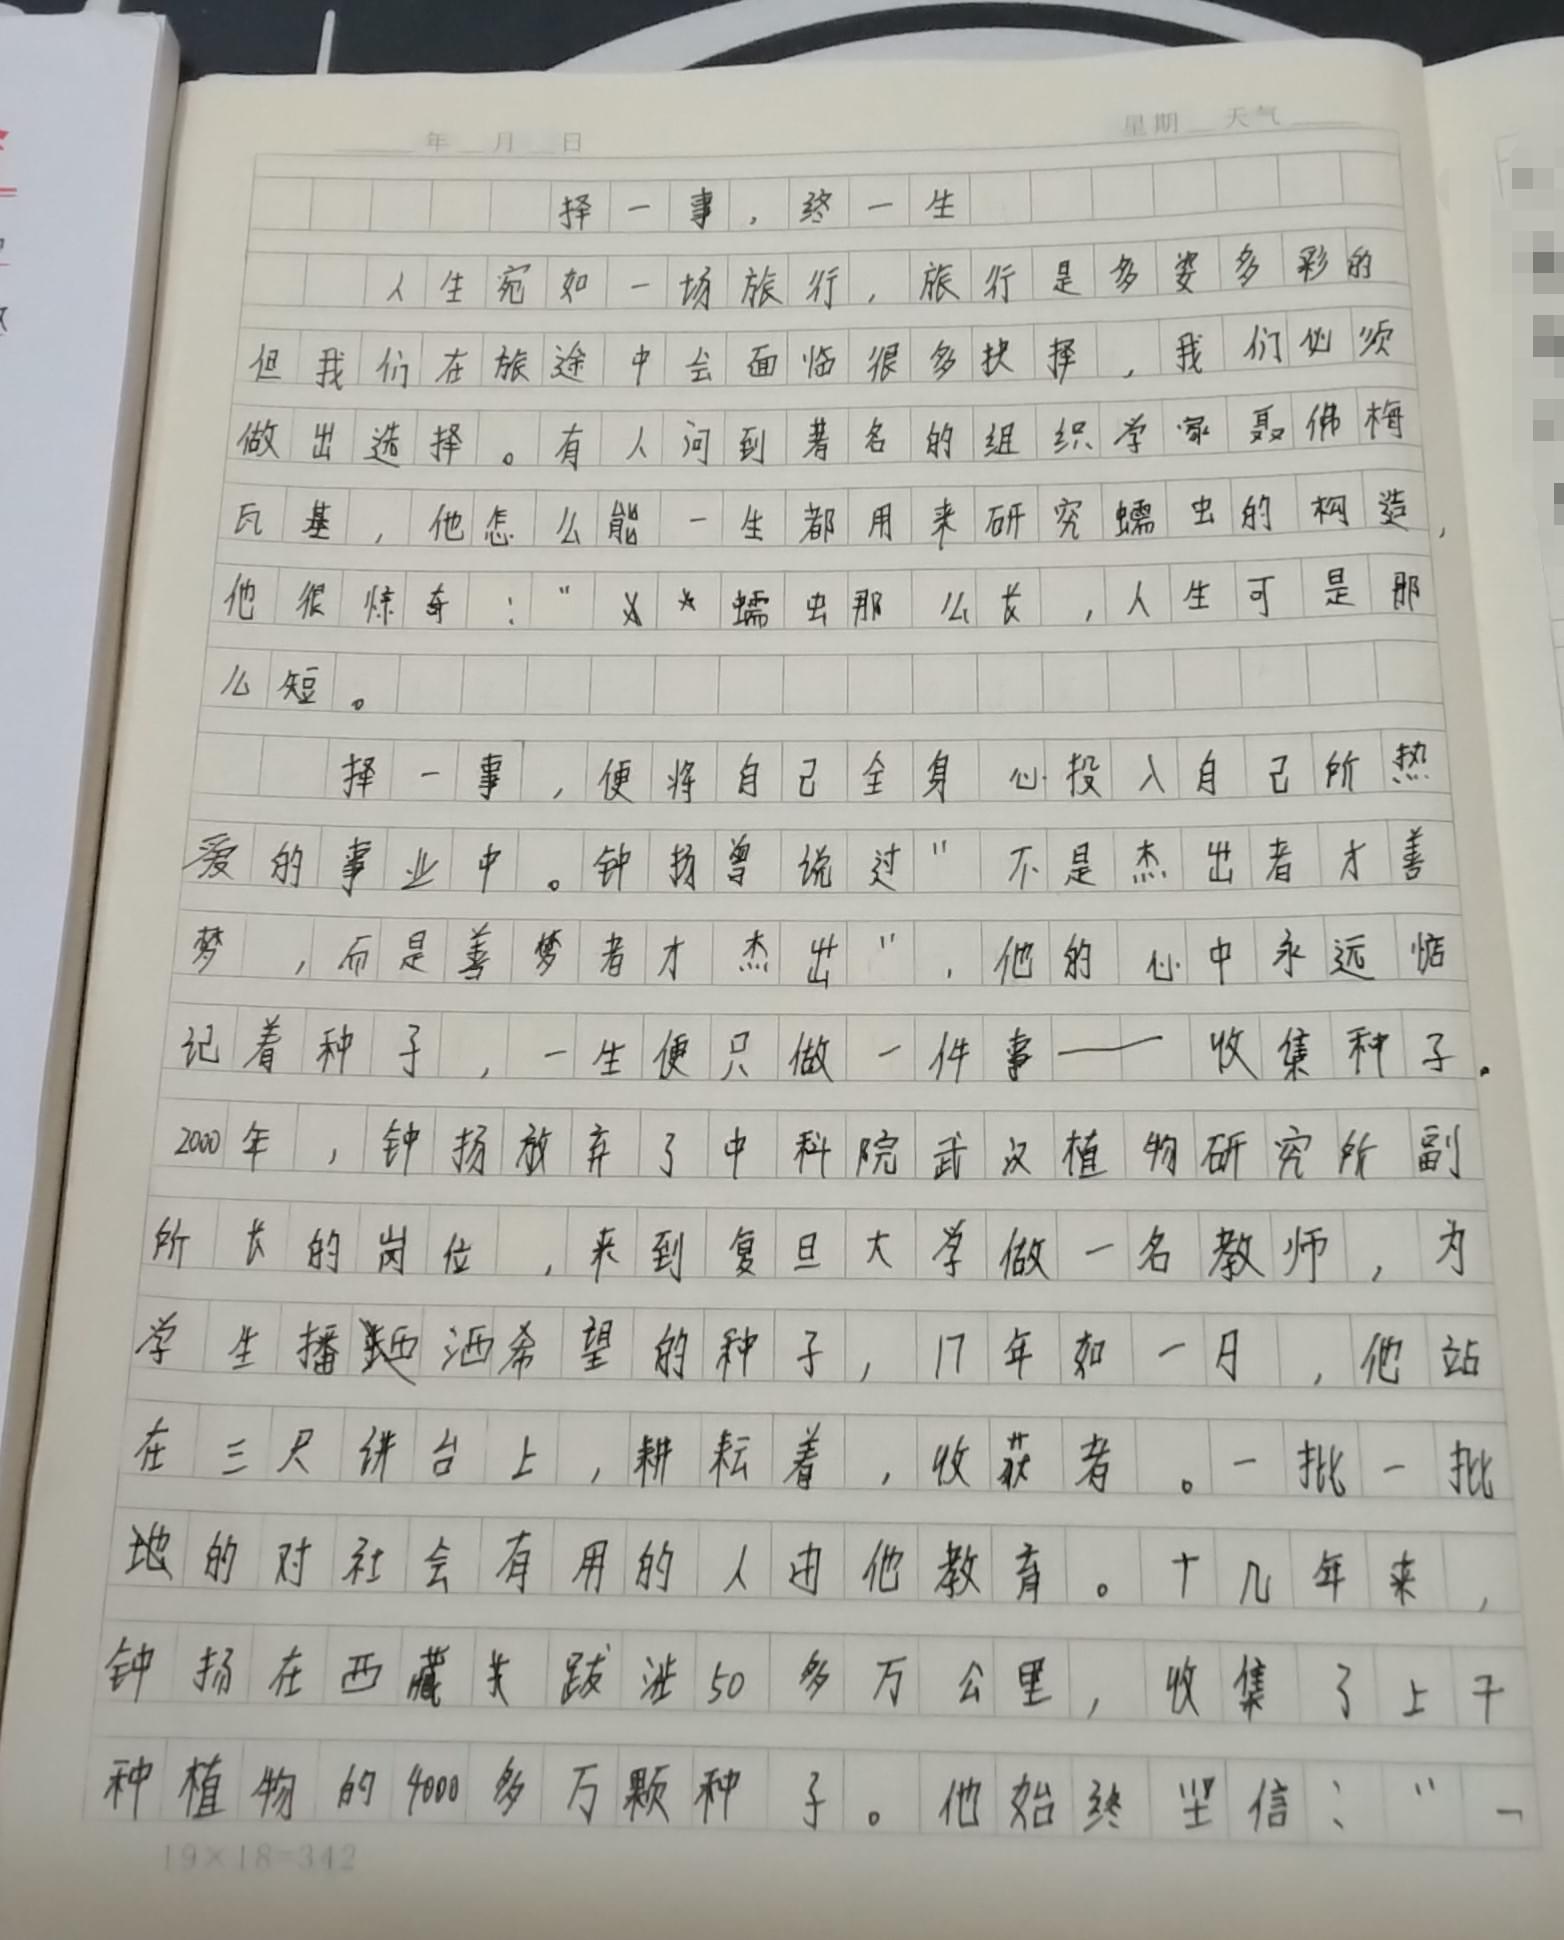 年 月 日 星期 天气
择一事，终一生
人生宛如一场旅行，旅行是多姿多彩的
但我们在旅途中会面临很多抉择，我们必须
做出选择。有人问到著名的组织学家聂佛梅
瓦基，他怎么能一生都用来研究蠕虫的构造，
他很惊奇：“蠕虫那么长，人生可是那
么短。
择一事，便将自己全身心投入自己所热
爱的事业中。钟扬曾说过“不是杰出者才善
梦，而是善梦者才杰出”，他的心中永远惦
记着种子，一生便只做一件事——收集种子。
2000年，钟扬放弃了中科院武汉植物研究所副
所长的岗位，来到复旦大学做一名教师，为
学生播洒希望的种子，17年如一日，他站
在三尺讲台上，耕耘着，收获者。一批一批
地的对社会有用的人由他教育。十几年来，
钟扬在西藏共跋涉50多万公里，收集了上千
种植物的4000多万颗种子。他始终坚信：“一
19×18=342